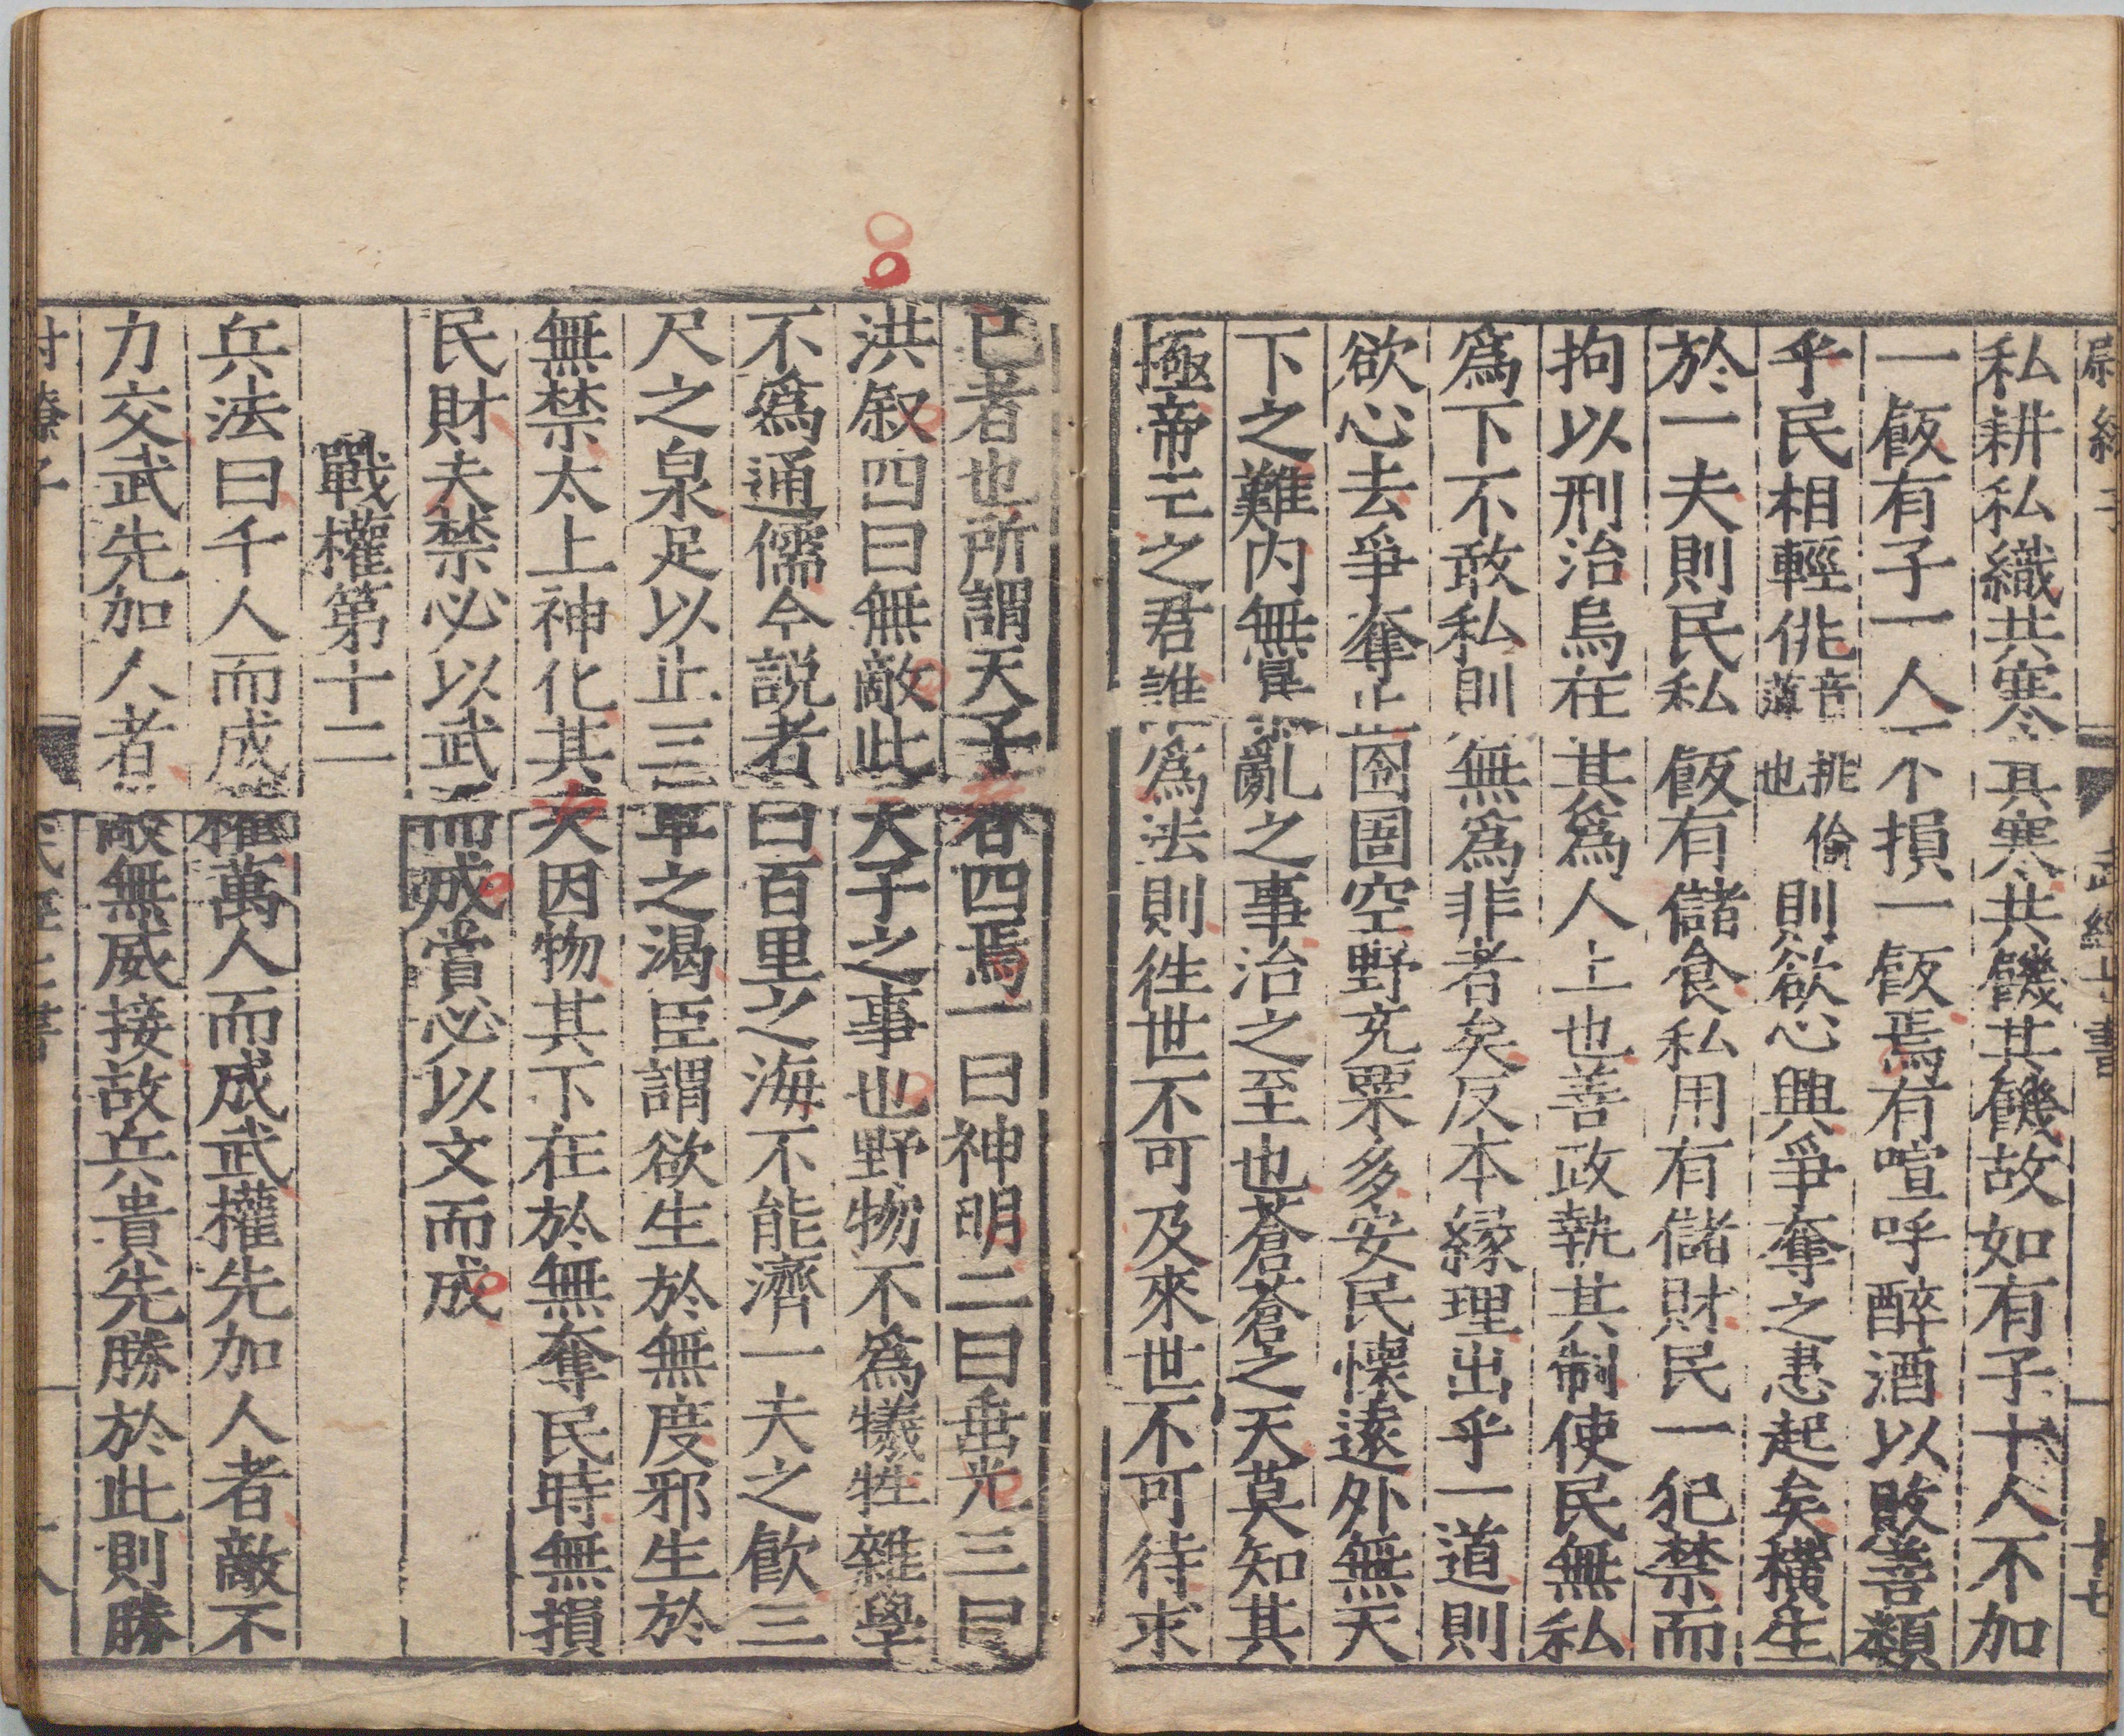 尉繚子 武經七書 十七
私耕私織共寒其寒共饑其饑故如有子十人不加
一飯有子一人不損一飯焉有喧呼醉酒以敗善類
乎民相輕佻音挑偸薄也則欲心興爭奪之患起矣橫生
於一夫則民私飯有儲食私用有儲財民一犯禁而
拘以刑治烏在其爲人上也善政執其制使民無私
爲下不敢私則無爲非者矣反本緣理出乎一道則
欲心去爭奪止囹圄空野充粟多安民懷遠外無天
下之難內無暴亂之事治之至也蒼蒼之天莫知其
極帝王之君誰爲法則徃世不可及來世不可待求
已者也所謂天子者四焉一曰神明二曰垂光三曰
洪叙四曰無敵此天子之事也野物不爲犧牲雜學
不爲通儒今説者曰百里之海不能濟一夫之飮三
尺之泉足以止三軍之渴臣謂欲生於無度邪生於
無禁太上神化其夫因物其下在於無奪民時無損
民財夫禁必以武而成賞必以文而成
戰權第十二
兵法曰千人而成權萬人而成武權先加人者敵不
力交武先加人者敵無威接故兵貴先勝於此則勝
尉繚子 武經七書 十八